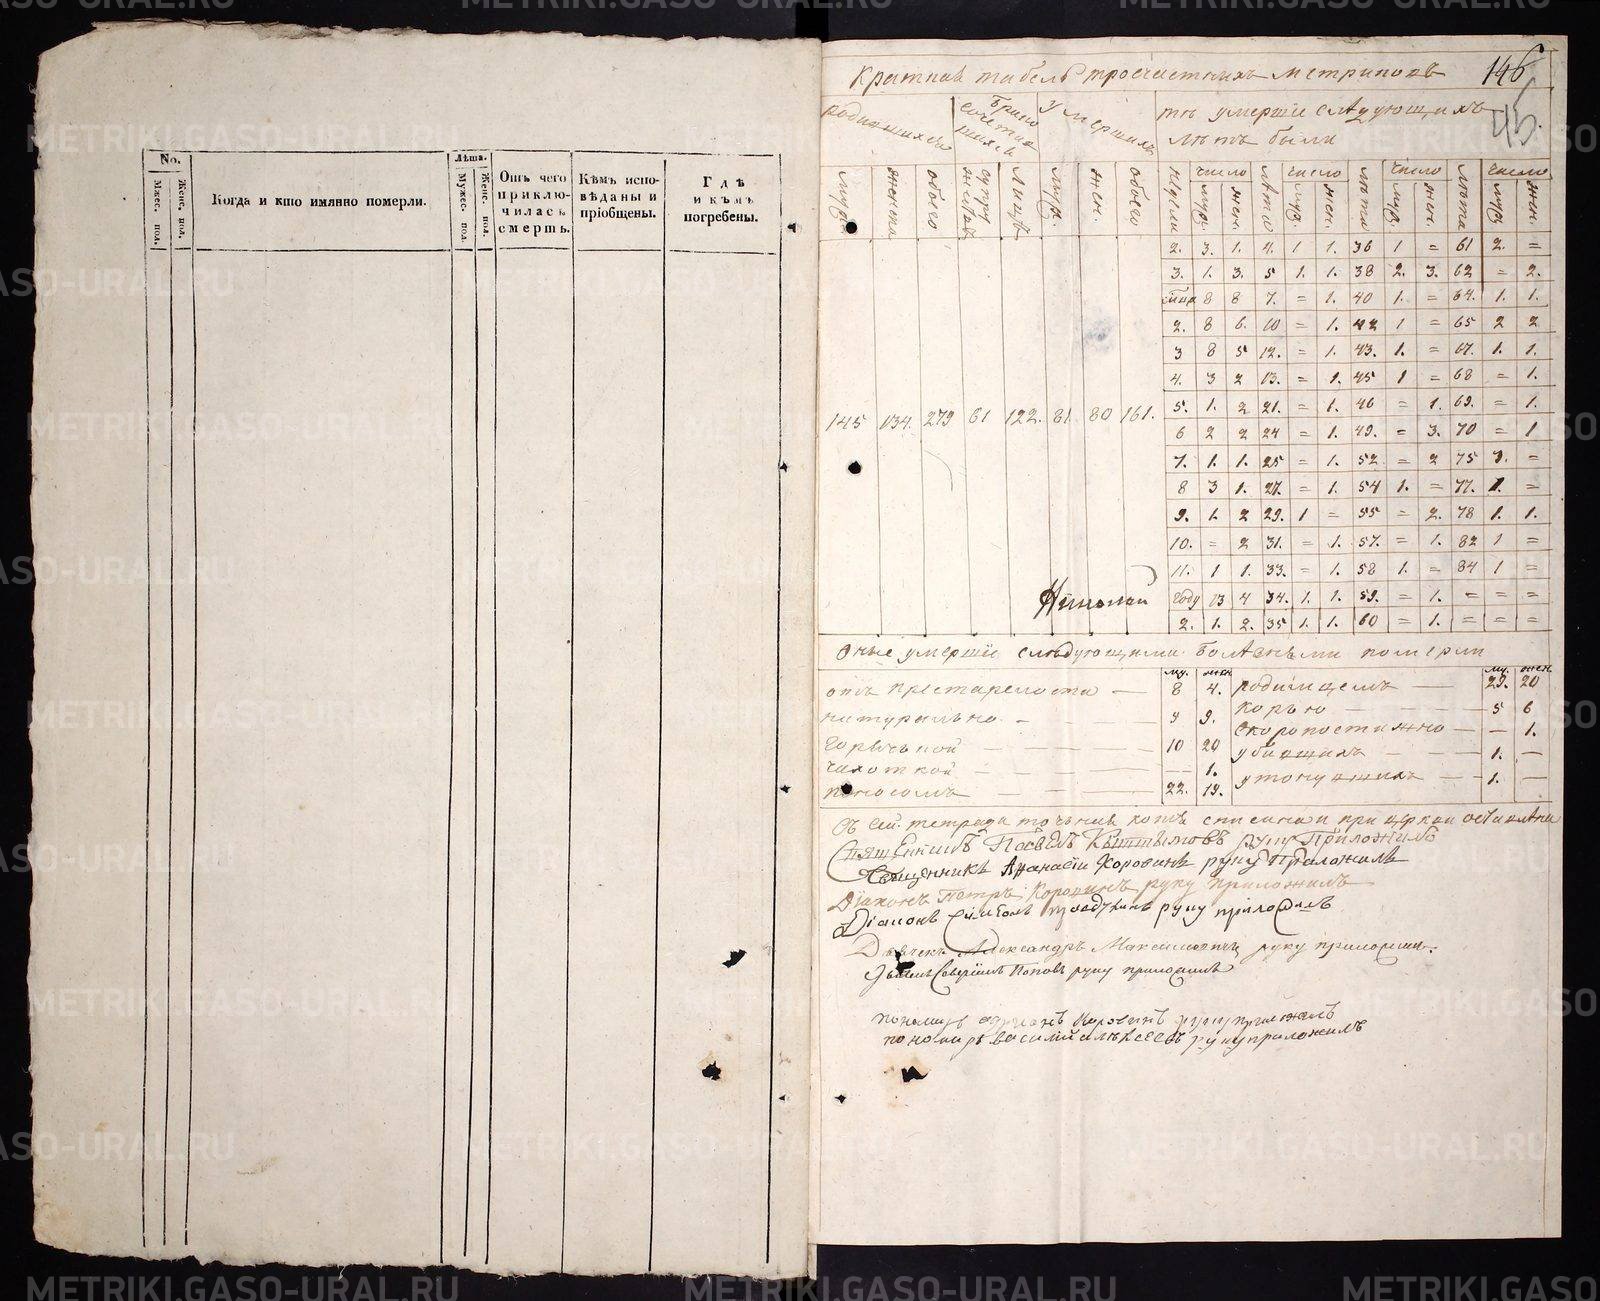 No.
Мжес. пол.
Женс. пол.
Когда и кто имянно померли.
Лѣта.
Мужес. пол.
Женс. пол.
Отъ чего приклю-
чилась
смерть.
Кѣмъ испо-
вѣданы и
пріобщены.
Гдѣ
и кѣмъ
погребены.
Краткая табель троечастныхъ метриковъ 146
45.
родившихся
Умершихъ
тѣ умершіе слѣдующихъ
лѣтъ были
муж. женска обоего лицъ муж. жен. обоего недели число муж. жен. лѣто число муж. жен. лѣта число муж. жен. лѣта число муж. жен.
2. 3. 1. 4. 1 1. 36 1 = 61 2. =
3. 1. 3. 5 1. 1. 38 2. 3. 62 = 2.
8 8 7. = 1. 40 1. = 64. 1. 1.
2. 8 6. 10 = 1. 42 1 = 65 2 2
3 8 5 12. = 1. 43. 1. = 67. 1. 1.
4. 3 2 13. = 1. 45 1 = 68 = 1.
145 134. 279 61 122. 81. 80 161.
5. 1. 2 21. = 1. 46 = 1. 69. = 1.
6 2 2 24 = 1. 49. = 3. 70 = 1
7. 1. 1. 25 = 1. 52. = 2 75 1. =
8 3 1. 27. = 1. 54 1. = 77. 1. =
9. 1. 2 29. 1 = 55 = 2. 78 1. 1.
10. = 2 31. = 1. 57. = 1. 82 1 =
11. 1 1. 33. = 1. 58 1. = 84 1 =
году 13 4 34. 1. 1. 59. = 1. = = =
2. 1. 2. 35 1. 1. 60 = 1. = = =
Оные умершіе слѣдующими болѣзньми померли
му. жен. му. жен.
отъ престарелости — 8 4. родимцемъ — 29. 20
натурально — 4 9. корью — 5 6
горячькой — 10 20 скоропостижно — — 1.
чахоткой — — 1. убившихъ — 1. —
поносомъ — 22. 19. утонувшихъ — 1. —
Съ сей тетради точьная копія списана и при церкви оставлена
Священникъ Павелъ руку приложилъ
Священникъ Афанасіи Коровинъ руку приложилъ
Діаконъ Петръ Коровинъ руку приложилъ
Діаконъ руку приложилъ
Дьячекъ Александръ Максимовичь руку приложилъ.
Поповъ руку приложилъ
пономарь Коровинъ руку приложилъ
пономарь василій алѣксеевъ руку приложилъ
METRIKI.GASO-URAL.RU